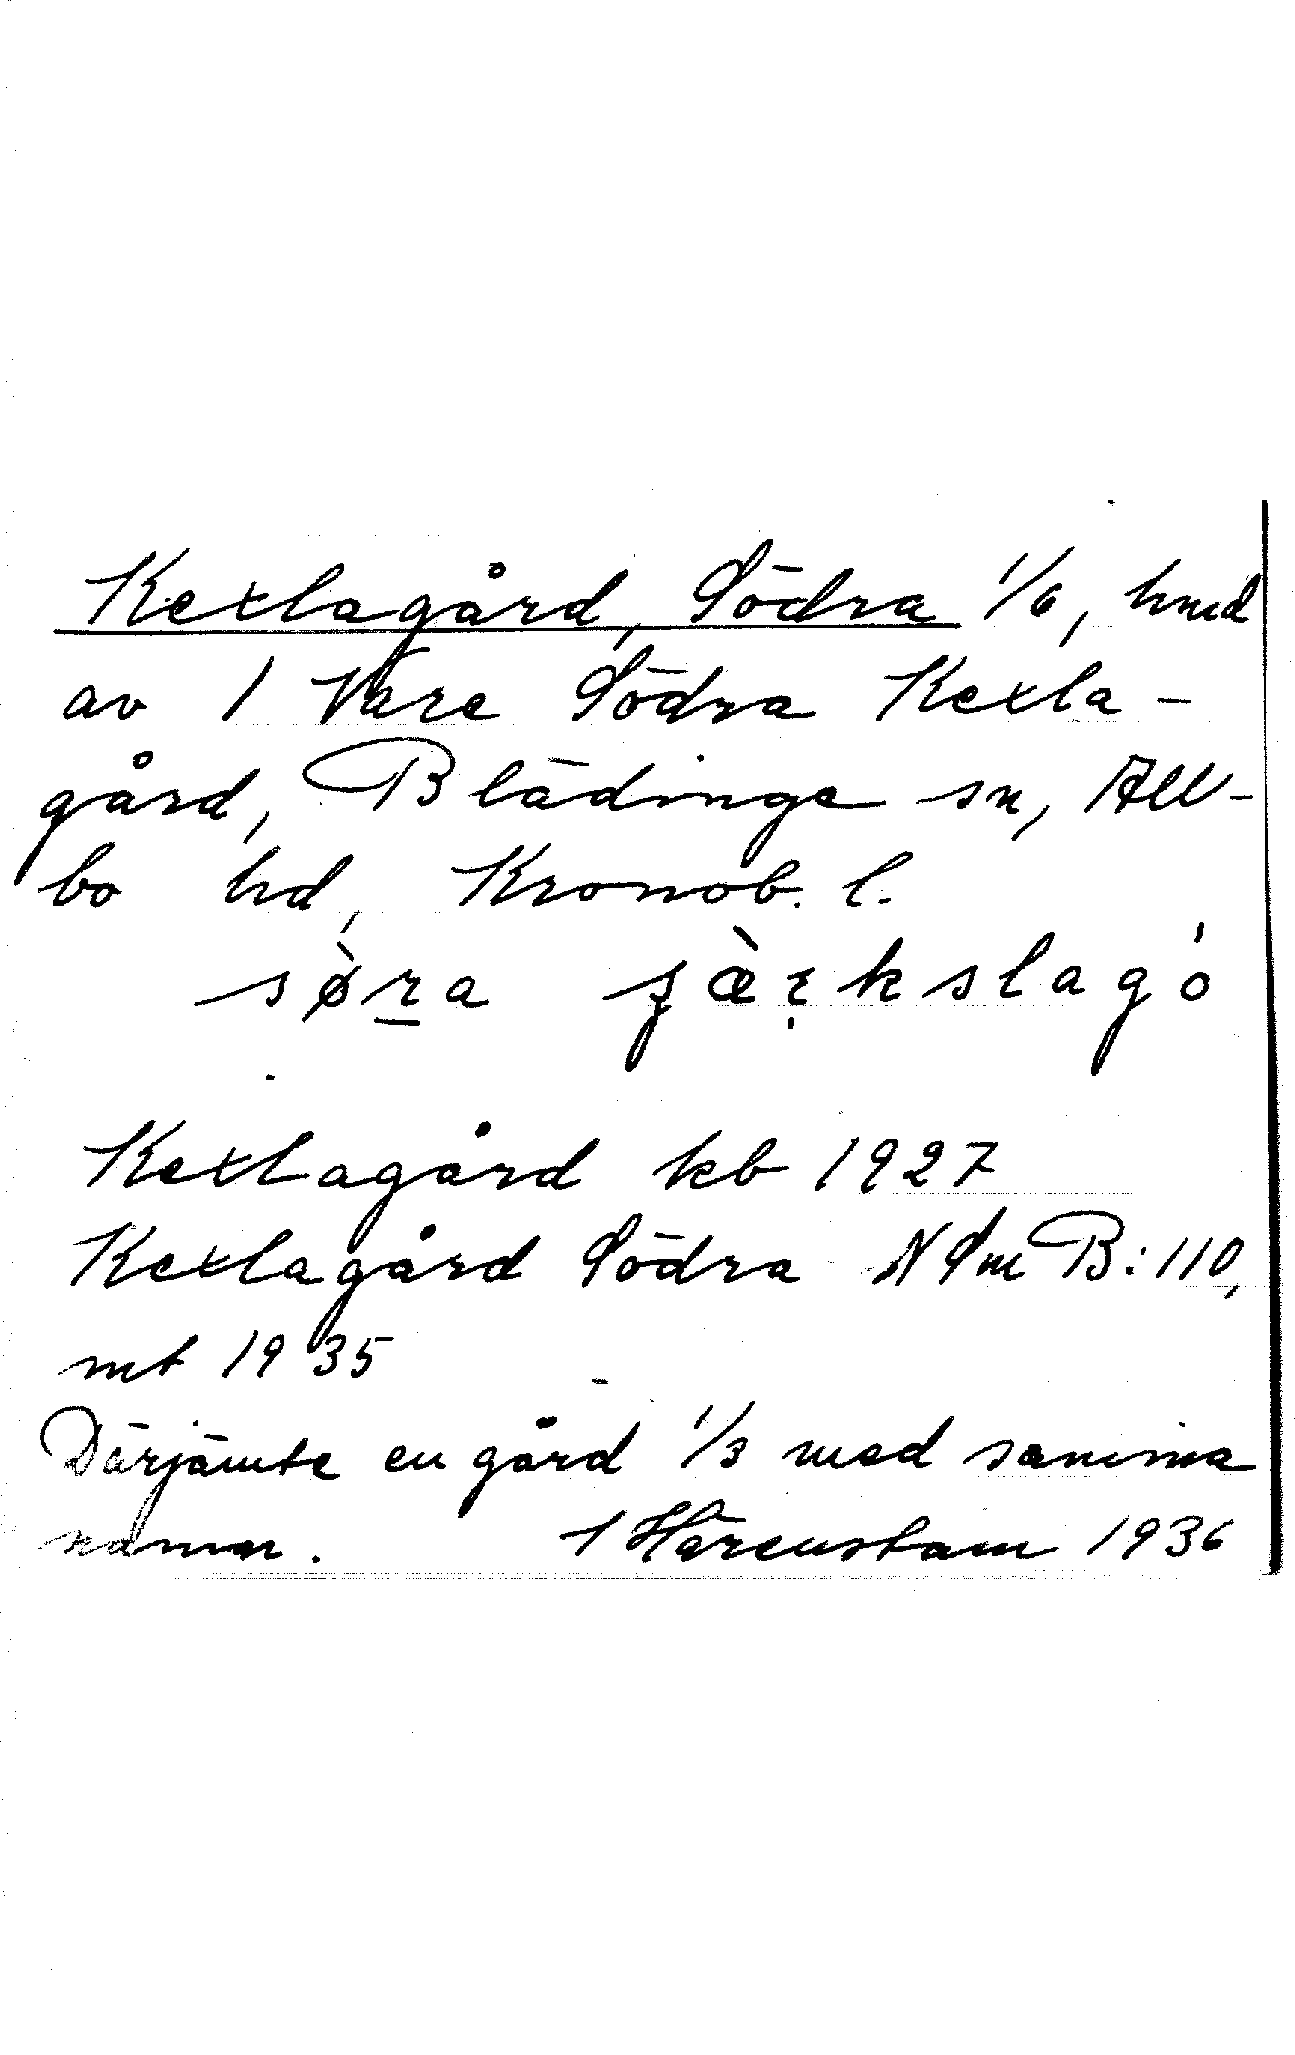 Kexlagård, Södra 1/6, hmd
av 1 Vare Södra Kexla-
gård, Blädinge sn, All-
bo hd, Kronob. l.
kslagó
Kexlagård kb 1927
Kexlagård Södra N Sm B:110,
mt 1935
Därjämte en gård 1/3 med samma
namn. I Härenstam 1936